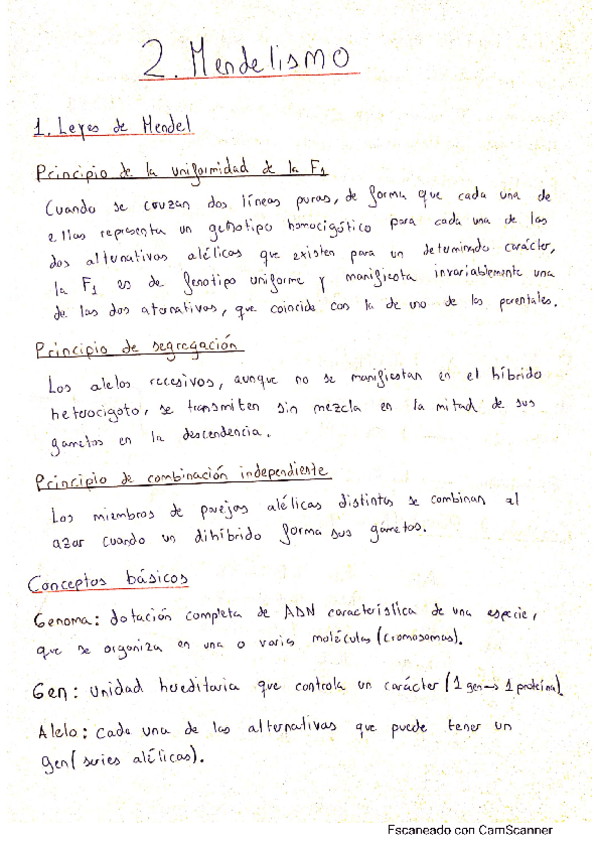 2. Mendelismo
1. Leyes de Mendel
Principio de la uniformidad de la F1
Cuando se cruzan dos líneas puras, de forma que cada una de
ellas representa un genotipo homocigótico para cada una de las
dos alternativas alélicas que existen para un determinado carácter,
la F1 es de fenotipo uniforme y manifiesta invariablemente una
de las dos aternativas, que coincide con la de uno de los parentales.
Principio de segregación
Los alelos recesivos, aunque no se manifiestan en el híbrido
heterocigoto, se transmiten sin mezcla en la mitad de sus
gametos en la descendencia.
Principio de combinación independiente
Los miembros de parejas alélicas distintas se combinan al
azar cuando un dihíbrido forma sus gámetos.
Conceptos básicos
Genoma: dotación completa de ADN característica de una especie,
que se organiza en una o varias moléculas (cromosomas).
Gen: Unidad hereditaria que controla un carácter (1 gen → 1 proteína)
Alelo: Cada una de las alternativas que puede tener un
gen (series alélicas).
Escaneado con CamScanner